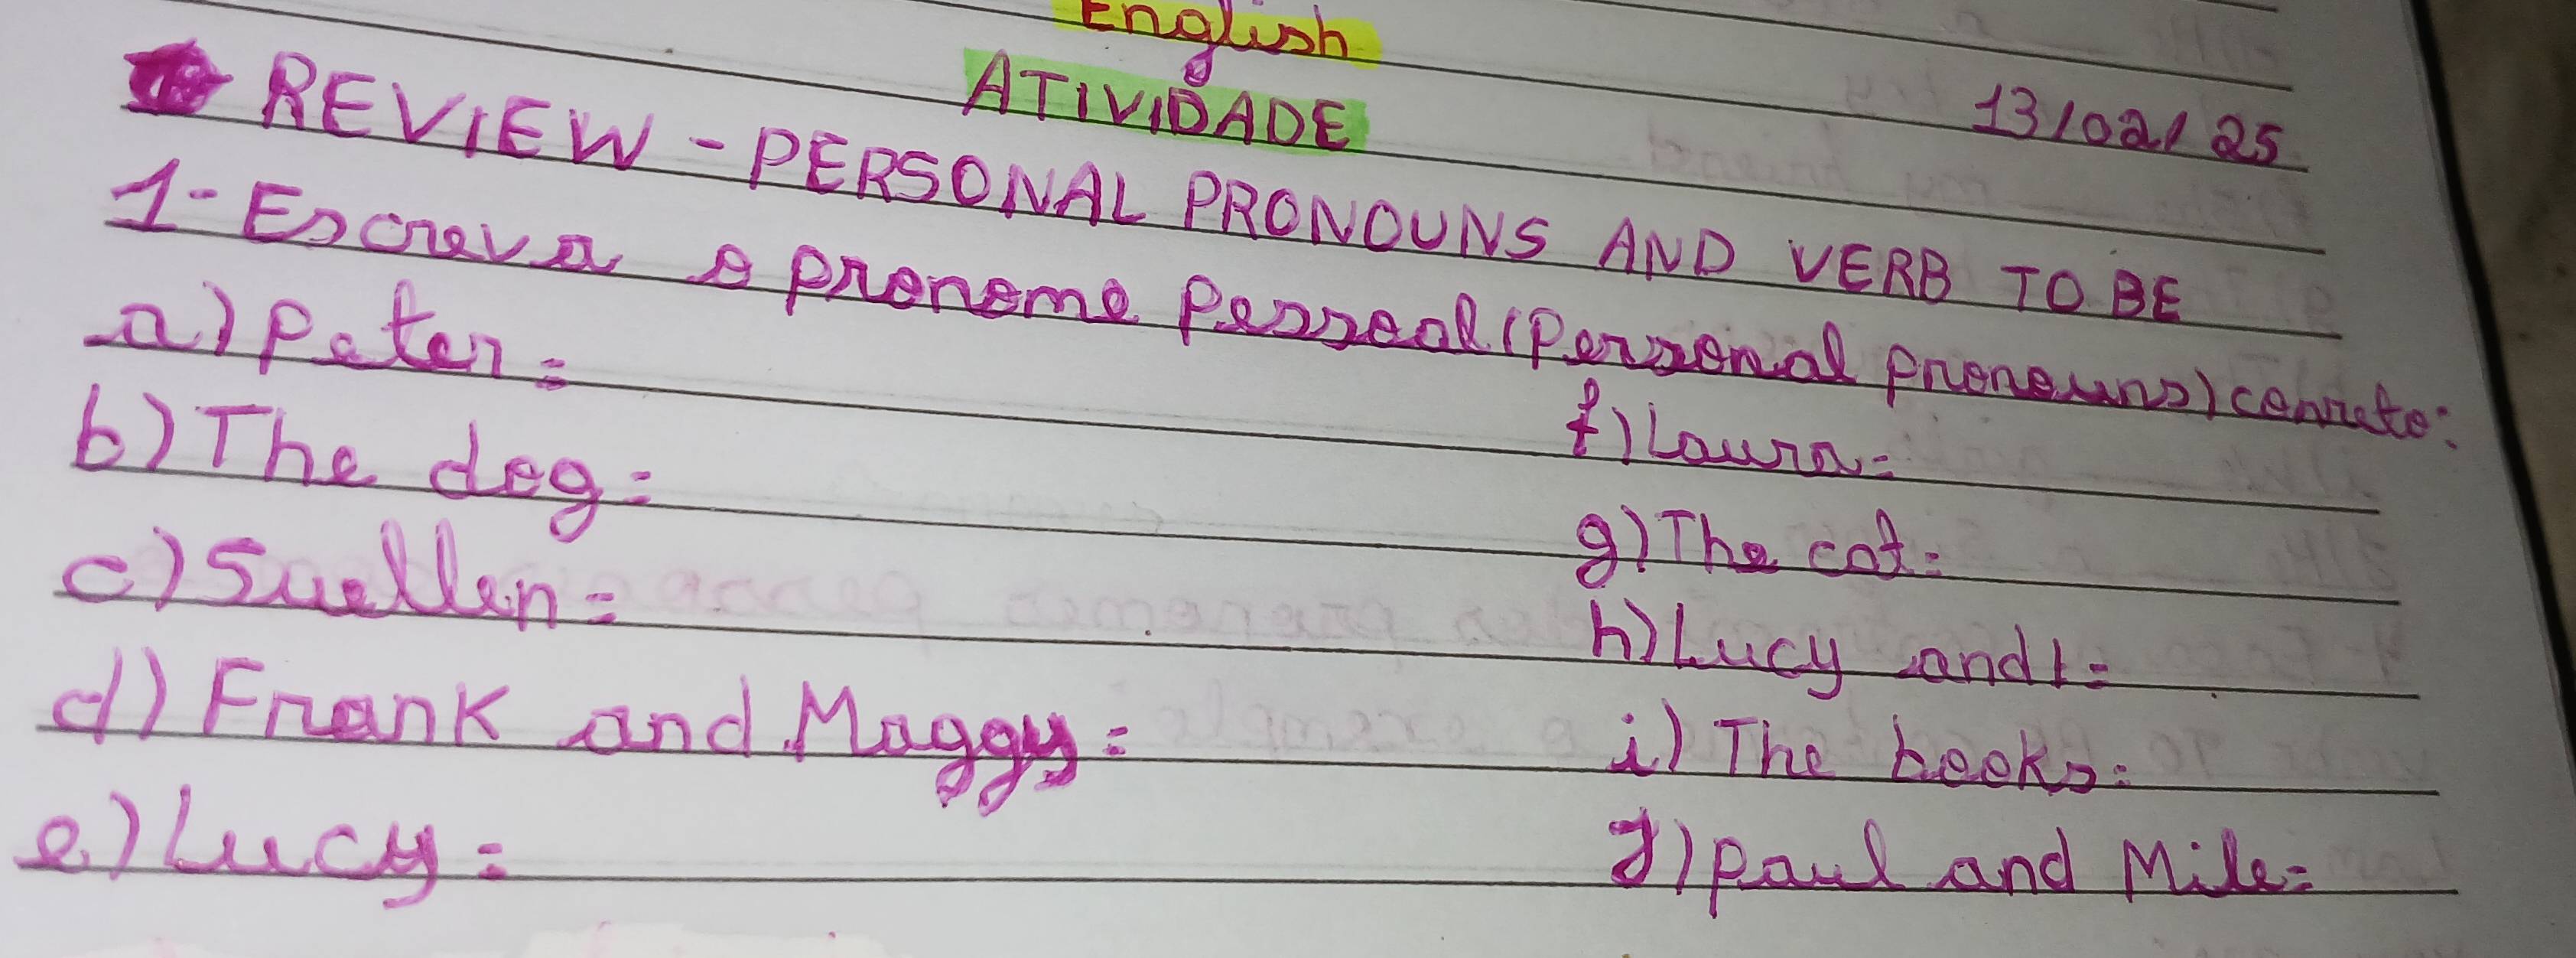 English
ATIVIDADE
13/02/25
REVIEW - PERSONAL PRONOUNS AND VERB TO BE
1- Escreva o pronome pessoal (Personal pronouns) correto:
a) Peter =
b) The dog =
c) Suellen =
d) Frank and Maggy =
e) Lucy =
f) Laura =
g) The cat =
h) Lucy and I =
i) The books =
J) Paul and Mile =